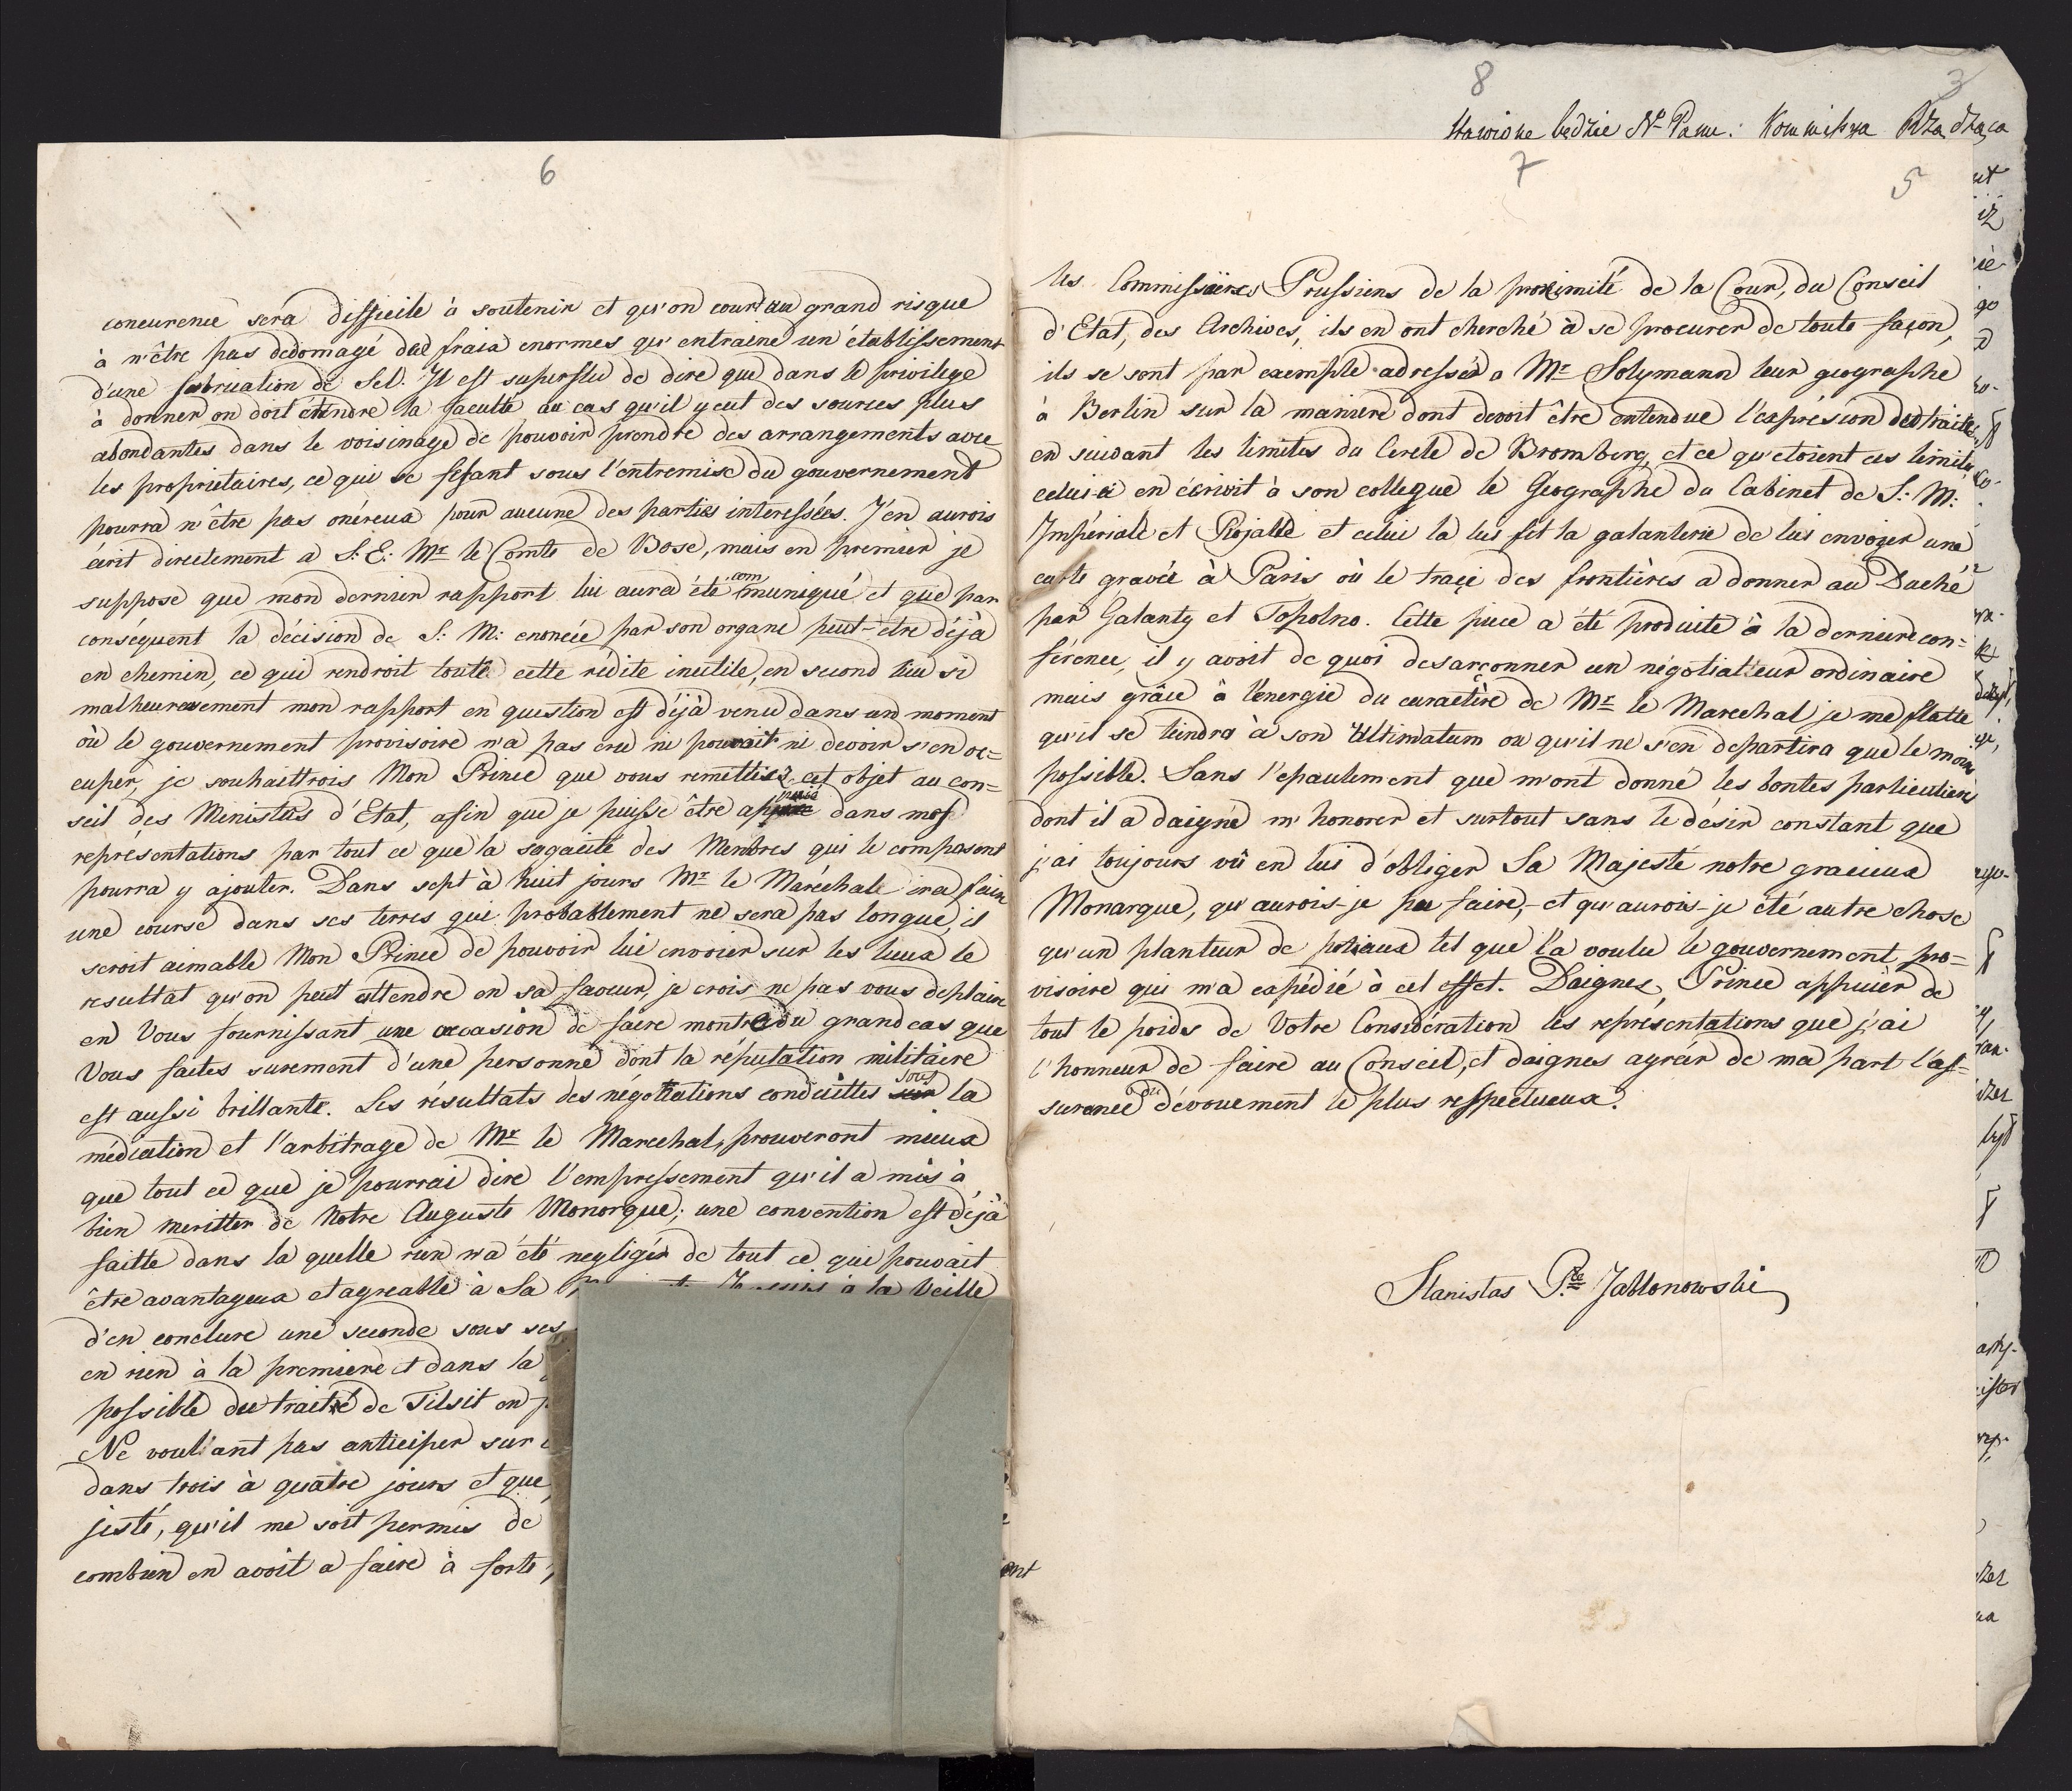 6
concurence sera difficile à soutenir et qu'on court au grand risque
à n'être pas dedomagé des fraix enormes qu'entraine un établissement
d'une fabrication de Sel. Il est superflu de dire que dans le privilege
à donner on doit étendre la faculté au cas qu'il y eut des sources plus
abondantes dans le voisinage de pouvoir prendre des arrangements avec
les proprietaires, ce qui se fesant sous l'entremise du gouvernement
pourra n'être pas onéreux pour aucune des parties interessées. J'en aurois
écrit directement a S: E: Mr le Comte de Bose, mais en premier je
suppose que mon dernier rapport lui aura été communiqué et que par
conséquent la décision de S: M: enoncée par son organe peut-être déjà
en chemin, ce qui rendroit toute cette rédite inutile, en second lieu si
malheureusement mon rapport en question est déjà venu dans un moment
où le gouvernement provisoire n'a pas cru ni pouvoit ni devoir s'en oc=
cuper, je souhaittrois Mon Prince que vous remettiez cet objet au con=
seil des Ministres d'Etat, afin que je puisse être appuié dans mes
représentations par tout ce que la sagacité des Membres qui le composent
pourra y ajouter. Dans sept à huit jours Mr le Maréchale ira faire
une course dans ses terres qui probablement ne sera pas longue, il
seroit aimable Mon Prince de pouvoir lui envoier sur les lieux le
resultat qu'on peut attendre en sa faveur, je crois ne pas vous deplaire
en Vous fournissant une occasion de faire montre du grand cas que
Vous faites surement d'une personne dont la réputation militaire
est aussi brillante. Les résultats des négotiations conduittes sous la
médiation et l'arbitrage de Mr le Marechal, prouveront mieux
que tout ce que je pourrai dire l'empressement qu'il a mis à
bien meritter de Notre Auguste Monarque; une convention est déjà
faitte dans la quelle rien n'a été negligé de tout ce qui pouvait
être avantageux et agreable à Sa à la Veille
d'en conclure une seconde sous ses
en rien à la premiere et dans la
possible du traité de Tilsit en
Ne voulant pas anticiper sur
dans trois à quatre jours et que
jesté, qu'il me soit permis de
combien on avoit a faire à forte
8 3
stawione będzie Nr Panu: Kommissya Rządząca
7 5
les Commissaires Prussiens de la proximité de la Cour, du Conseil
d'Etat, des Archives, ils en ont cherché à se procurer de toute façon,
ils se sont par exemple adressés a Mr Solymann leur geographe
à Berlin sur la maniere dont devoit être entendue l'expréssion des traités
en suivant les limites du Cercle de Bromberg, et ce qu'etoient ces limites
celui-ci en écrivit à son collegue le Geographe du Cabinet de S: M:
Impériale et Rojalle et celui la lui fit la galanterie de lui envoyer une
carte gravée à Paris où le traçé des frontières a donner au Duché
par Galanty et Topolno. Cette piece a été produite à la derniere con=
férence, il y avoit de quoi desarçonner un négotiateur ordinaire
mais grâce à l'energie du caractère de Mr le Marechal je me flatte
qu'il se tiendra à son Ultimatum ou qu'il ne s'en departira que le moins
possible. Sans l'epaulement que m'ont donné les bontes particulieres
dont il a daigné m'honorer et surtout sans le désir constant que
j'ai toujours vû en lui d'obliger Sa Majesté notre gracieux
Monarque, qu'aurois-je pu faire, et qu'aurois-je été autre chose
qu'un planteur de poteaux tel que l'a voulu le gouvernement pro=
visoire qui m'a expédié à cet effet. Daignez Prince appuier de
tout le poids de Votre Considération les représentations que j'ai
l'honneur de faire au Conseil, et daignes agréér de ma part l'as=
surance du dévouement le plus respectueux.
Stanislas Pce Jabłonowski